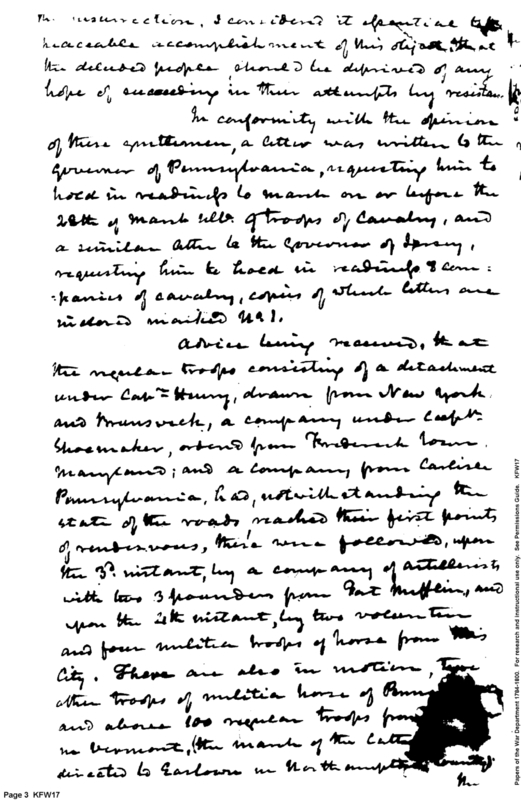 the insurrection, I considered it essential to the
peaceable accomplishment of this object, that
the deluded people, should be deprived of any
hope of succeeding in their attempts by
In conformity with the opinion
of these gentlemen, a letter was written to the
Governor of Pennsylvania, requesting him to
hold in readiness to march on or before the
28th of March ulto. 9 troops of Cavalry, and
a similar letter to the Governor of Jersey,
requesting him to hold in readiness 8 com:
:panies of cavalry, copies of which letters are
inclosed marked No 1.
Advice being received, that
the regular troops consisting of a detachment
under Capn Henry, drawn from New York
and Brunswick, a company under Captn
Shoemaker, ordered from Frederick Town
Maryland; and a company from Carlisle
Pennsylvania, had, notwithstanding the
state of the roads, reached their first points
of rendezvous, these were followed, upon
the 3d instant, by a company of artillerists
with two 3 pounders from Fort Mifflin, and
upon the 4th instant, by two volunteer
and four militia troops of horse from this
City. There are also in motion,
other troops of militia horse of
and above 100 regular troops from
in Vermont, (the march of the
directed to Eastown in
The
Page 3 KFW17
Papers of the War Department 1784-1800. For research and instructional use only. See Permissions Guide. KFW17